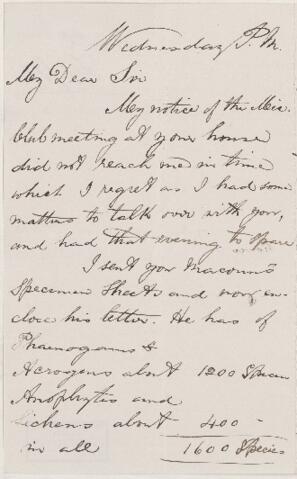 Wednesday P.M.
My Dear Sir
My notice of the Mic.
Club meeting at your house
did not reach me in time
which I regret as I had some
matters to talk over with you,
and had that evening to spare
I sent you Macoun's
Specimen Sheets and now en-
close his letter. He has of
Phaenogams &
Acrogens about 1200 Species
Anophytes and
Lichens about 400
in all 1600 Species